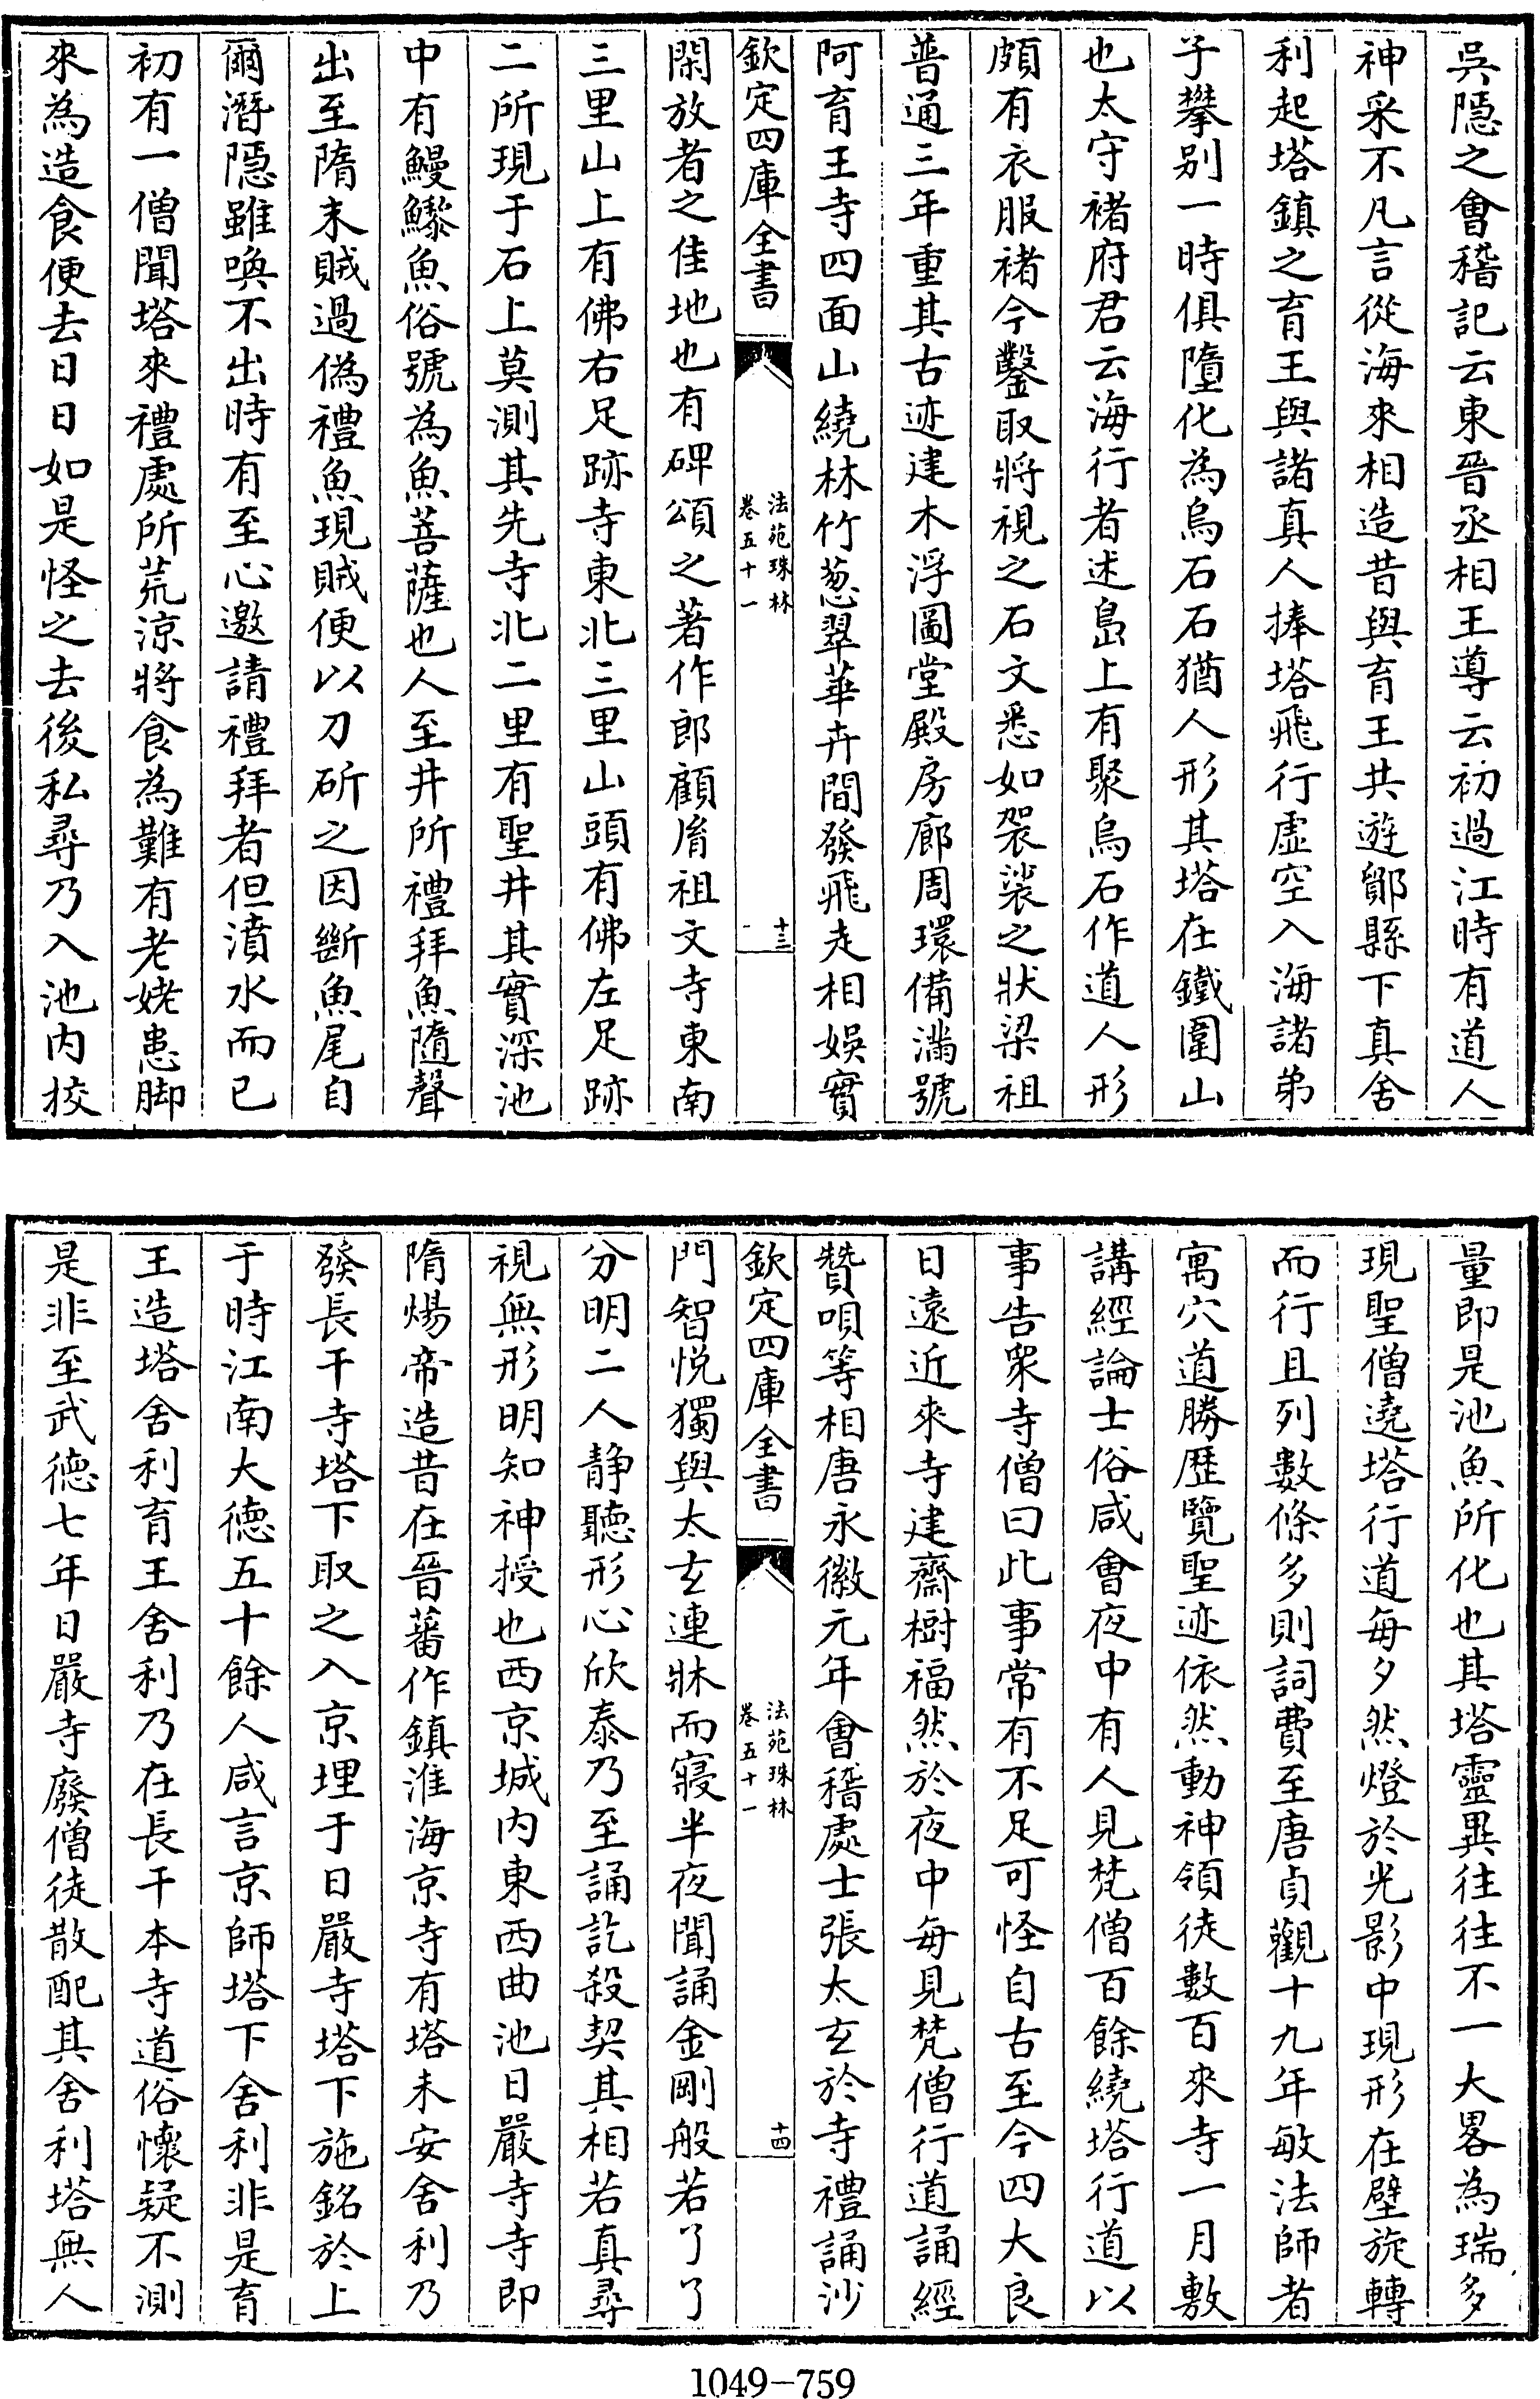 吳隱之會稽記云東晉丞相王導云初過江時有道人
神采不凡言從海來相造昔與育王共遊鄮縣下真舍
利起塔鎮之育王與諸真人捧塔飛行虛空入海諸弟
子攀別一時俱墮化為烏石石猶人形其塔在鐵圍山
也太守褚府君云海行者述島上有聚烏石作道人形
頗有衣服褚今鑿取將視之石文悉如袈裟之狀梁祖
普通三年重其古迹建木浮圖堂殿房廊周環備滿號
阿育王寺四面山繞林竹葱翠華卉間發飛走相娛實
欽定四庫全書
法苑珠林
卷五十一
十三
閑放者之佳地也有碑頌之著作郎顧胤祖文寺東南
三里山上有佛右足跡寺東北三里山頭有佛左足跡
二所現于石上莫測其先寺北二里有聖井其實深池
中有鰻鱺魚俗號為魚菩薩也人至井所禮拜魚隨聲
出至隋末賊過偽禮魚現賊便以刀斫之因斷魚尾自
爾潛隱雖喚不出時有至心邀請禮拜者但濆水而已
初有一僧聞塔來禮處所荒涼將食為難有老姥患脚
來為造食便去日日如是怪之去後私尋乃入池内挍
量即是池魚所化也其塔靈異往往不一大畧為瑞多
現聖僧遶塔行道每夕然燈於光影中現形在壁旋轉
而行且列數條多則詞費至唐貞觀十九年敏法師者
寓穴道勝歷覽聖迹依然動神領徒數百來寺一月敷
講經論士俗咸會夜中有人見梵僧百餘繞塔行道以
事告衆寺僧曰此事常有不足可怪自古至今四大良
日遠近來寺建齋樹福然於夜中每見梵僧行道誦經
贊唄等相唐永徽元年會稽處士張太玄於寺禮誦沙
欽定四庫全書
法苑珠林
卷五十一
十四
門智悦獨與太玄連牀而寢半夜聞誦金剛般若了了
分明二人静聽形心欣泰乃至誦訖殺契其相若真尋
視無形明知神授也西京城内東西曲池日嚴寺寺即
隋煬帝造昔在晉蕃作鎮淮海京寺有塔未安舍利乃
發長干寺塔下取之入京埋于日嚴寺塔下施銘於上
于時江南大德五十餘人咸言京師塔下舍利非是育
王造塔舍利育王舍利乃在長干本寺道俗懷疑不測
是非至武德七年日嚴寺廢僧徒散配其舍利塔無人
1049-759